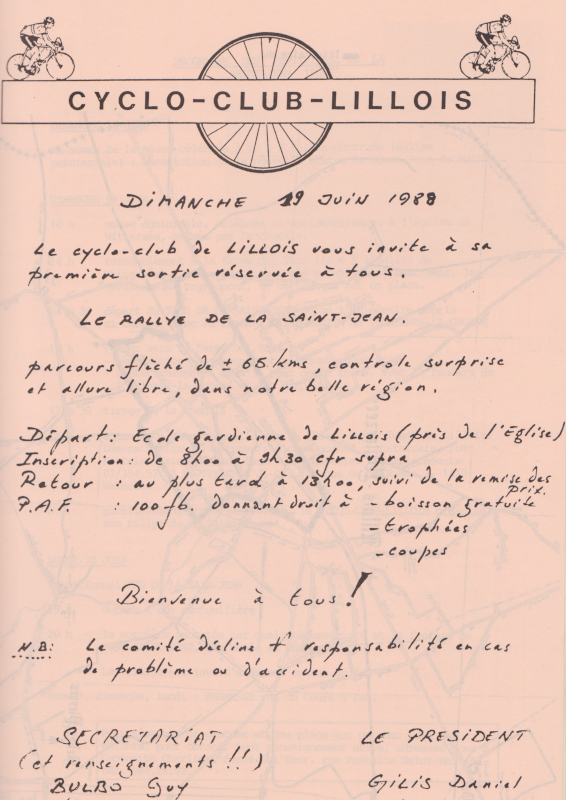 CYCLO-CLUB-LILLOIS
DIMANCHE 19 JUIN 1988
Le cyclo-club de LILLOIS vous invite à sa
première sortie réservée à tous.
LE RALLYE DE LA SAINT-JEAN.
parcours fléché de ± 65 kms, controle surprise
et allure libre, dans notre belle région.
Départ: Ecole gardienne de Lillois (près de l'Eglise)
Inscription: de 8h00 à 9h30 cfr supra
Retour : au plus tard à 13h00, suivi de la remise des
prix.
P.A.F. : 100 fb. donnant droit à - boisson gratuite
- trophées
- coupes
Bienvenue à tous!
N.B: Le comité décline tte responsabilité en cas
de problème ou d'accident.
SECRETARIAT LE PRESIDENT
(et renseignements !!)
BULBO Guy GILIS Daniel